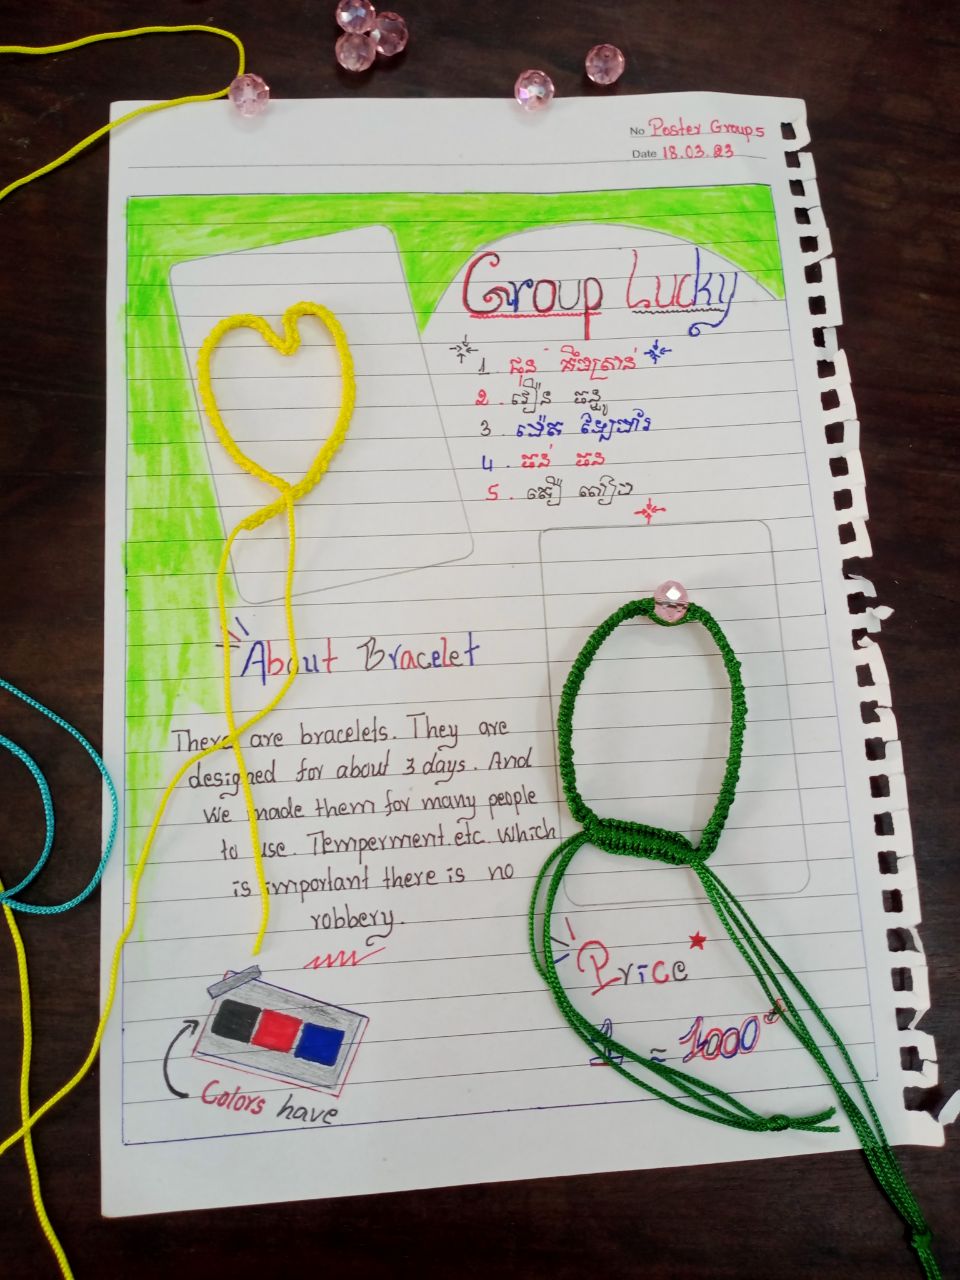 No Poster Group 5
Date 18.03.23
Group Lucky
1. ជុន
2. រឿន ធន្នូ
3.
4. ធន់ ធន
5. សឿ
About Bracelet
There are bracelets. They are
designed for about 3 days. And
We made them for many people
to use. Temperment.etc. which
is important there is no
robbery.
Price
1 = 1000៛
Colors have